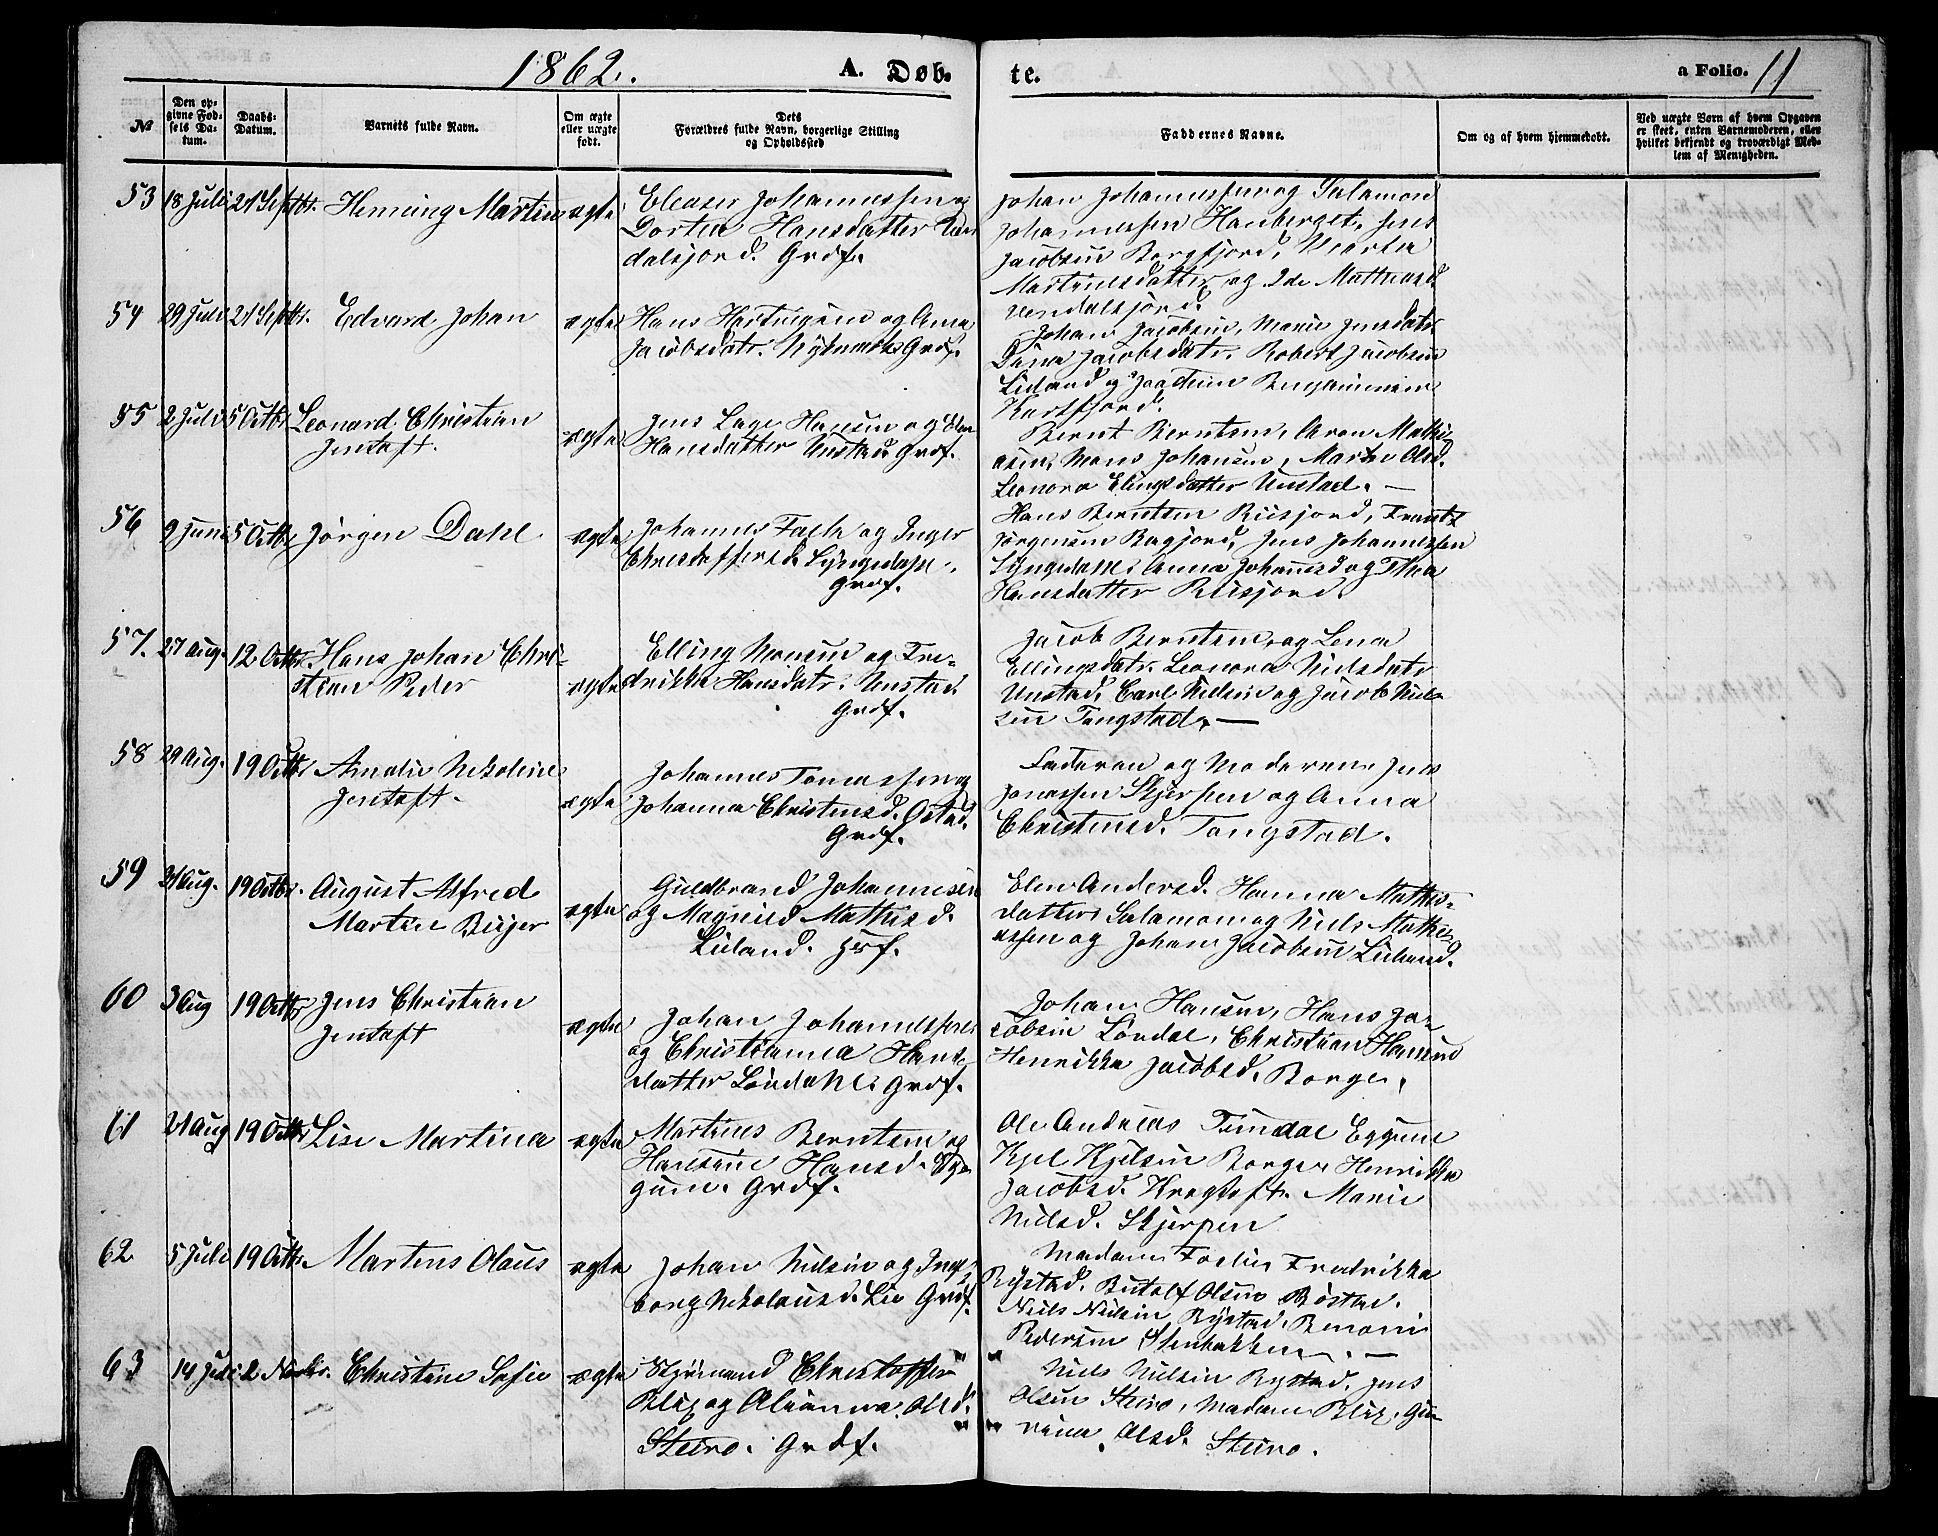 1862.
A. Døb-
te.
a Folio. 11
№
Den op-
givne Fød-
sels Da-
tum.
Daabs-
Datum.
Barnets fulde Navn.
Om ægte
eller uægte
født.
Dets
Forældres fulde Navn, borgerlige Stilling
og Opholdssted
Faddernes Navne.
Om og af hvem hjemmedøbt.
Ved uægte Børn af hvem Opgaven
er skeet, enten Barnemoderen, eller
hvilket bekjendt og troværdigt Med-
lem af Menigheden.
53 18 Juli 21 Septbr. Heming Martin ægte
Eleaser Johannessen og
Dortea Hansdatter
dalsjord. Grdf.
Johan Johannessen og Salamon
Johannessen Hanberget, Jens
Jacobsen Borgfjord, Marta
Martinusdatter og Ide Matheusd.
Vendalsjord.
54 29 Juli 21 Septbr. Edvard Johan ægte
Hans Hartvigsen og Anna
Jacobsdatr. Nykmark Grdf.
Johan Jacobsen, Marie Jensdatr.
Dina Jacobsdatr. Robert Jacobsen
Liland og Joachim Benjaminsen
Kartfjord.
55 2 Juli 5 Octbr Leonard Christian
Jentoft. ægte
Jens Lage Hansen og Elen
Hansdatter Unstad Grdf.
Bernt Berntsen, Aron Mathi-
asen, Mons Johansen, Marta Olsd.
Leonora Elingsdatter Unstad. —
56 9 Juni 5 Octbr Jørgen Dahl ægte
Johannes Falk og Inger
Christoffersd. Lyngedahl.
Grdf.
Hans Berntsen Riisjord, Frantz
Jørgensen Bagjord, Jens Johannessen
Lyngedahl Anna Johannesd og Thea
Hansdatter Riisjord.
57. 27 Aug. 12 Octbr. Hans Johan Chri-
stian Peder ægte
Elling Monsen og Fre-
drikka Hansdatr. Unstad.
Grdf.
Jacob Berntsen og Lena
Ellingsdatr. Leonora Nielsdatr
Unstad. Carl Nielsen og Jacob Niel-
sen Tangstad. —
58 29 Aug. 19 Octbr Amalie Nikoline
Jentoft. ægte
Johannes Tomassen og
Johanna Christensd. Ostad.
Grdf.
Faderen og Moderen Jens
Jonassen Skjerpen og Anna
Christensd. Tangstad.
59 31 Aug. 19 Octbr. August Alfred
Martin Birger ægte
Guldbrand Johannesen
og Magnild Mathisd.
Liland. Grdf.
Elen Andersd. Hanna Mathis-
datter Salamon og Niels Mathi-
assen og Johan Jacobsen Liland.
60 3 Aug 19 Octbr Jens Christian
Jentoft ægte
Johan Johannessen
og Christianna Hans-
datter Løvdahl. Grdf.
Johan Hansen, Hans Ja-
cobsen Løvdal, Christian Hansen
Henrikka Jacobsd. Borge.
61 21 Aug 19 Octbr Lise Martina ægte
Martinus Berntsen og
Hansine Hansd. Eg-
gum. Grdf.
Ole Andreas Tundal Eggum
Kjel Kjelsen Borge. Henrikka
Jacobsd. Kregtoft. Marie
Nielsd. Skjerpen
62 5 Juli 19 Octbr. Martens Olaus ægte
Johan Nielsen og Inge-
borg Nikolaisd. Lie Grdf.
Madam Foslie Fredrikka
Rystad. Rutolf Olsen Bøstad.
Niels Nielsen Rystad. Benoni
Pedersen Stenbakken. —
63 14 Juli 2 Novbr. Christine Sofie ægte
Styrmand Christoffer
Blix og Alianna Olsd.
Steiro. Grdf.
Niels Nielsen Rystad. Jens
Olsen Steiro, Madam Blix, Gu-
rina Olsd. Steiro.